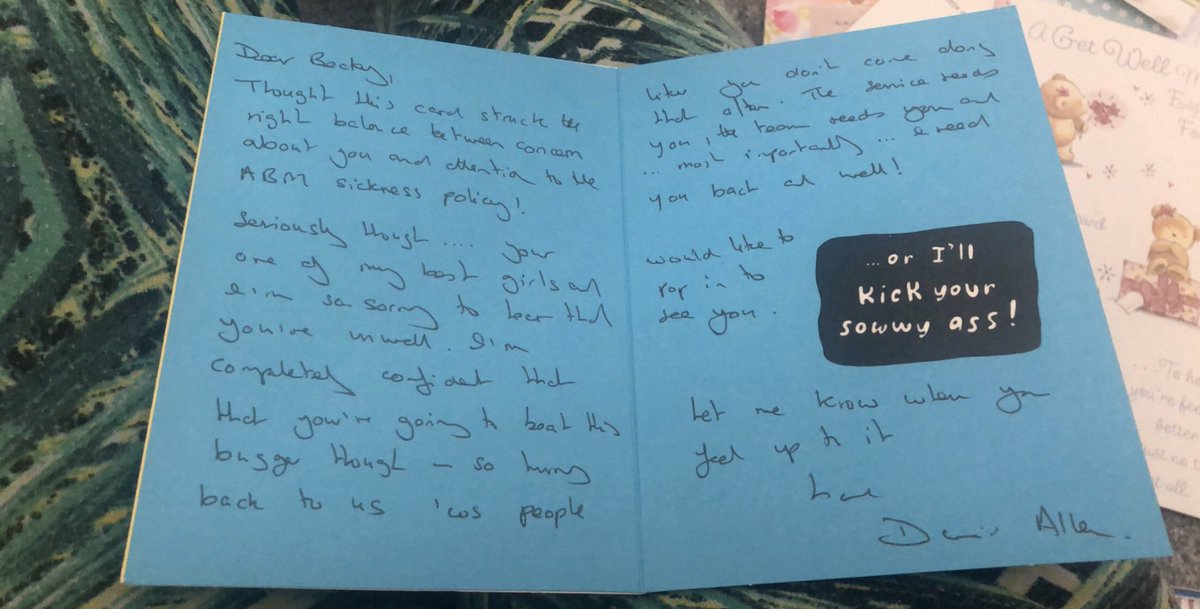 Dear Becky,
Thought this card struck the
right balance between concern
about you and attention to the
ABM sickness policy!
Seriously though.... your
one of my best girls and
I'm so sorry to hear that
you're unwell. I'm
completely confident that
that you're going to beat this
bugger though – so hurry
back to us 'cos people
like you don't come along
that often. The service needs
you, the team needs you and
... most importantly ... I need
you back and well!
would like to
pop in to
see you.
...or I'll
kick your
sowwy ass!
Let me know when you
feel up to it
Love
Allen.
A Get Well
To
you're
better
just no
at all